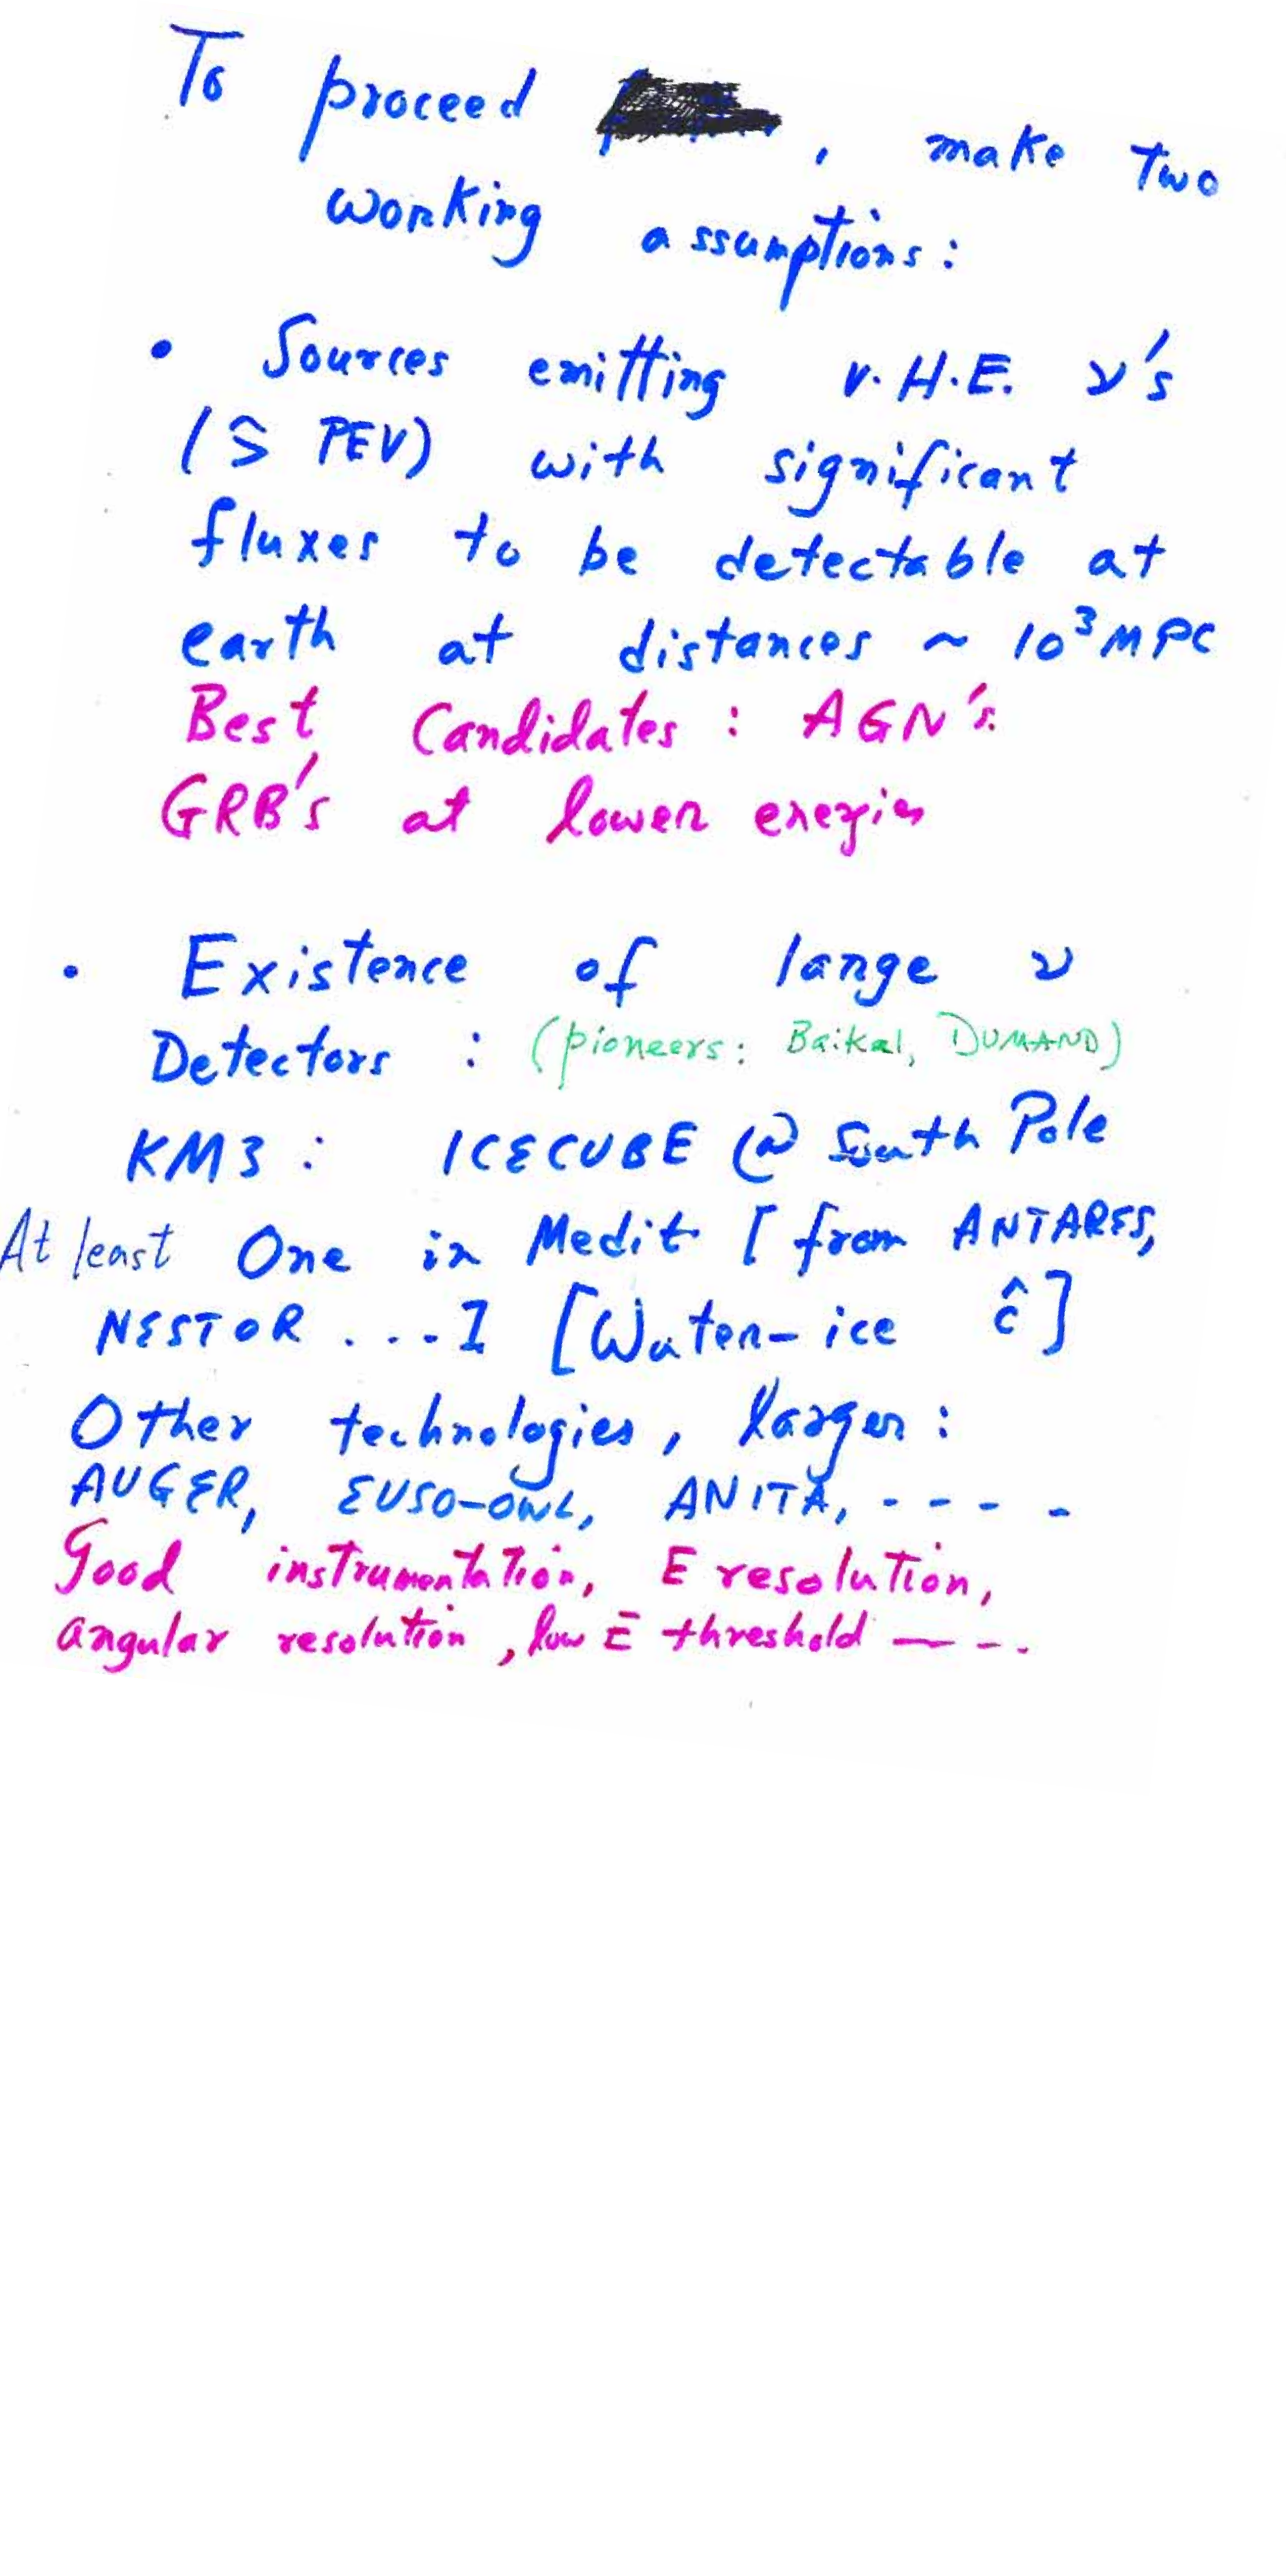 To proceed , make two
working assumptions:
• Sources emitting V.H.E. ν's
(≳ PEV) with significant
fluxes to be detectable at
earth at distances ~ 10³ MPC
Best Candidates : AGN's.
GRB's at lower energies
• Existence of large ν
Detectors : (pioneers: Baikal, DUMAND)
KM3 : ICECUBE @ South Pole
At least One in Medit. [from ANTARES,
NESTOR ....] [Water-ice ĉ]
Other technologies, larger :
AUGER, EUSO-OWL, ANITA, - - - -
Good instrumentation, E resolution,
angular resolution, low E threshold — - -.